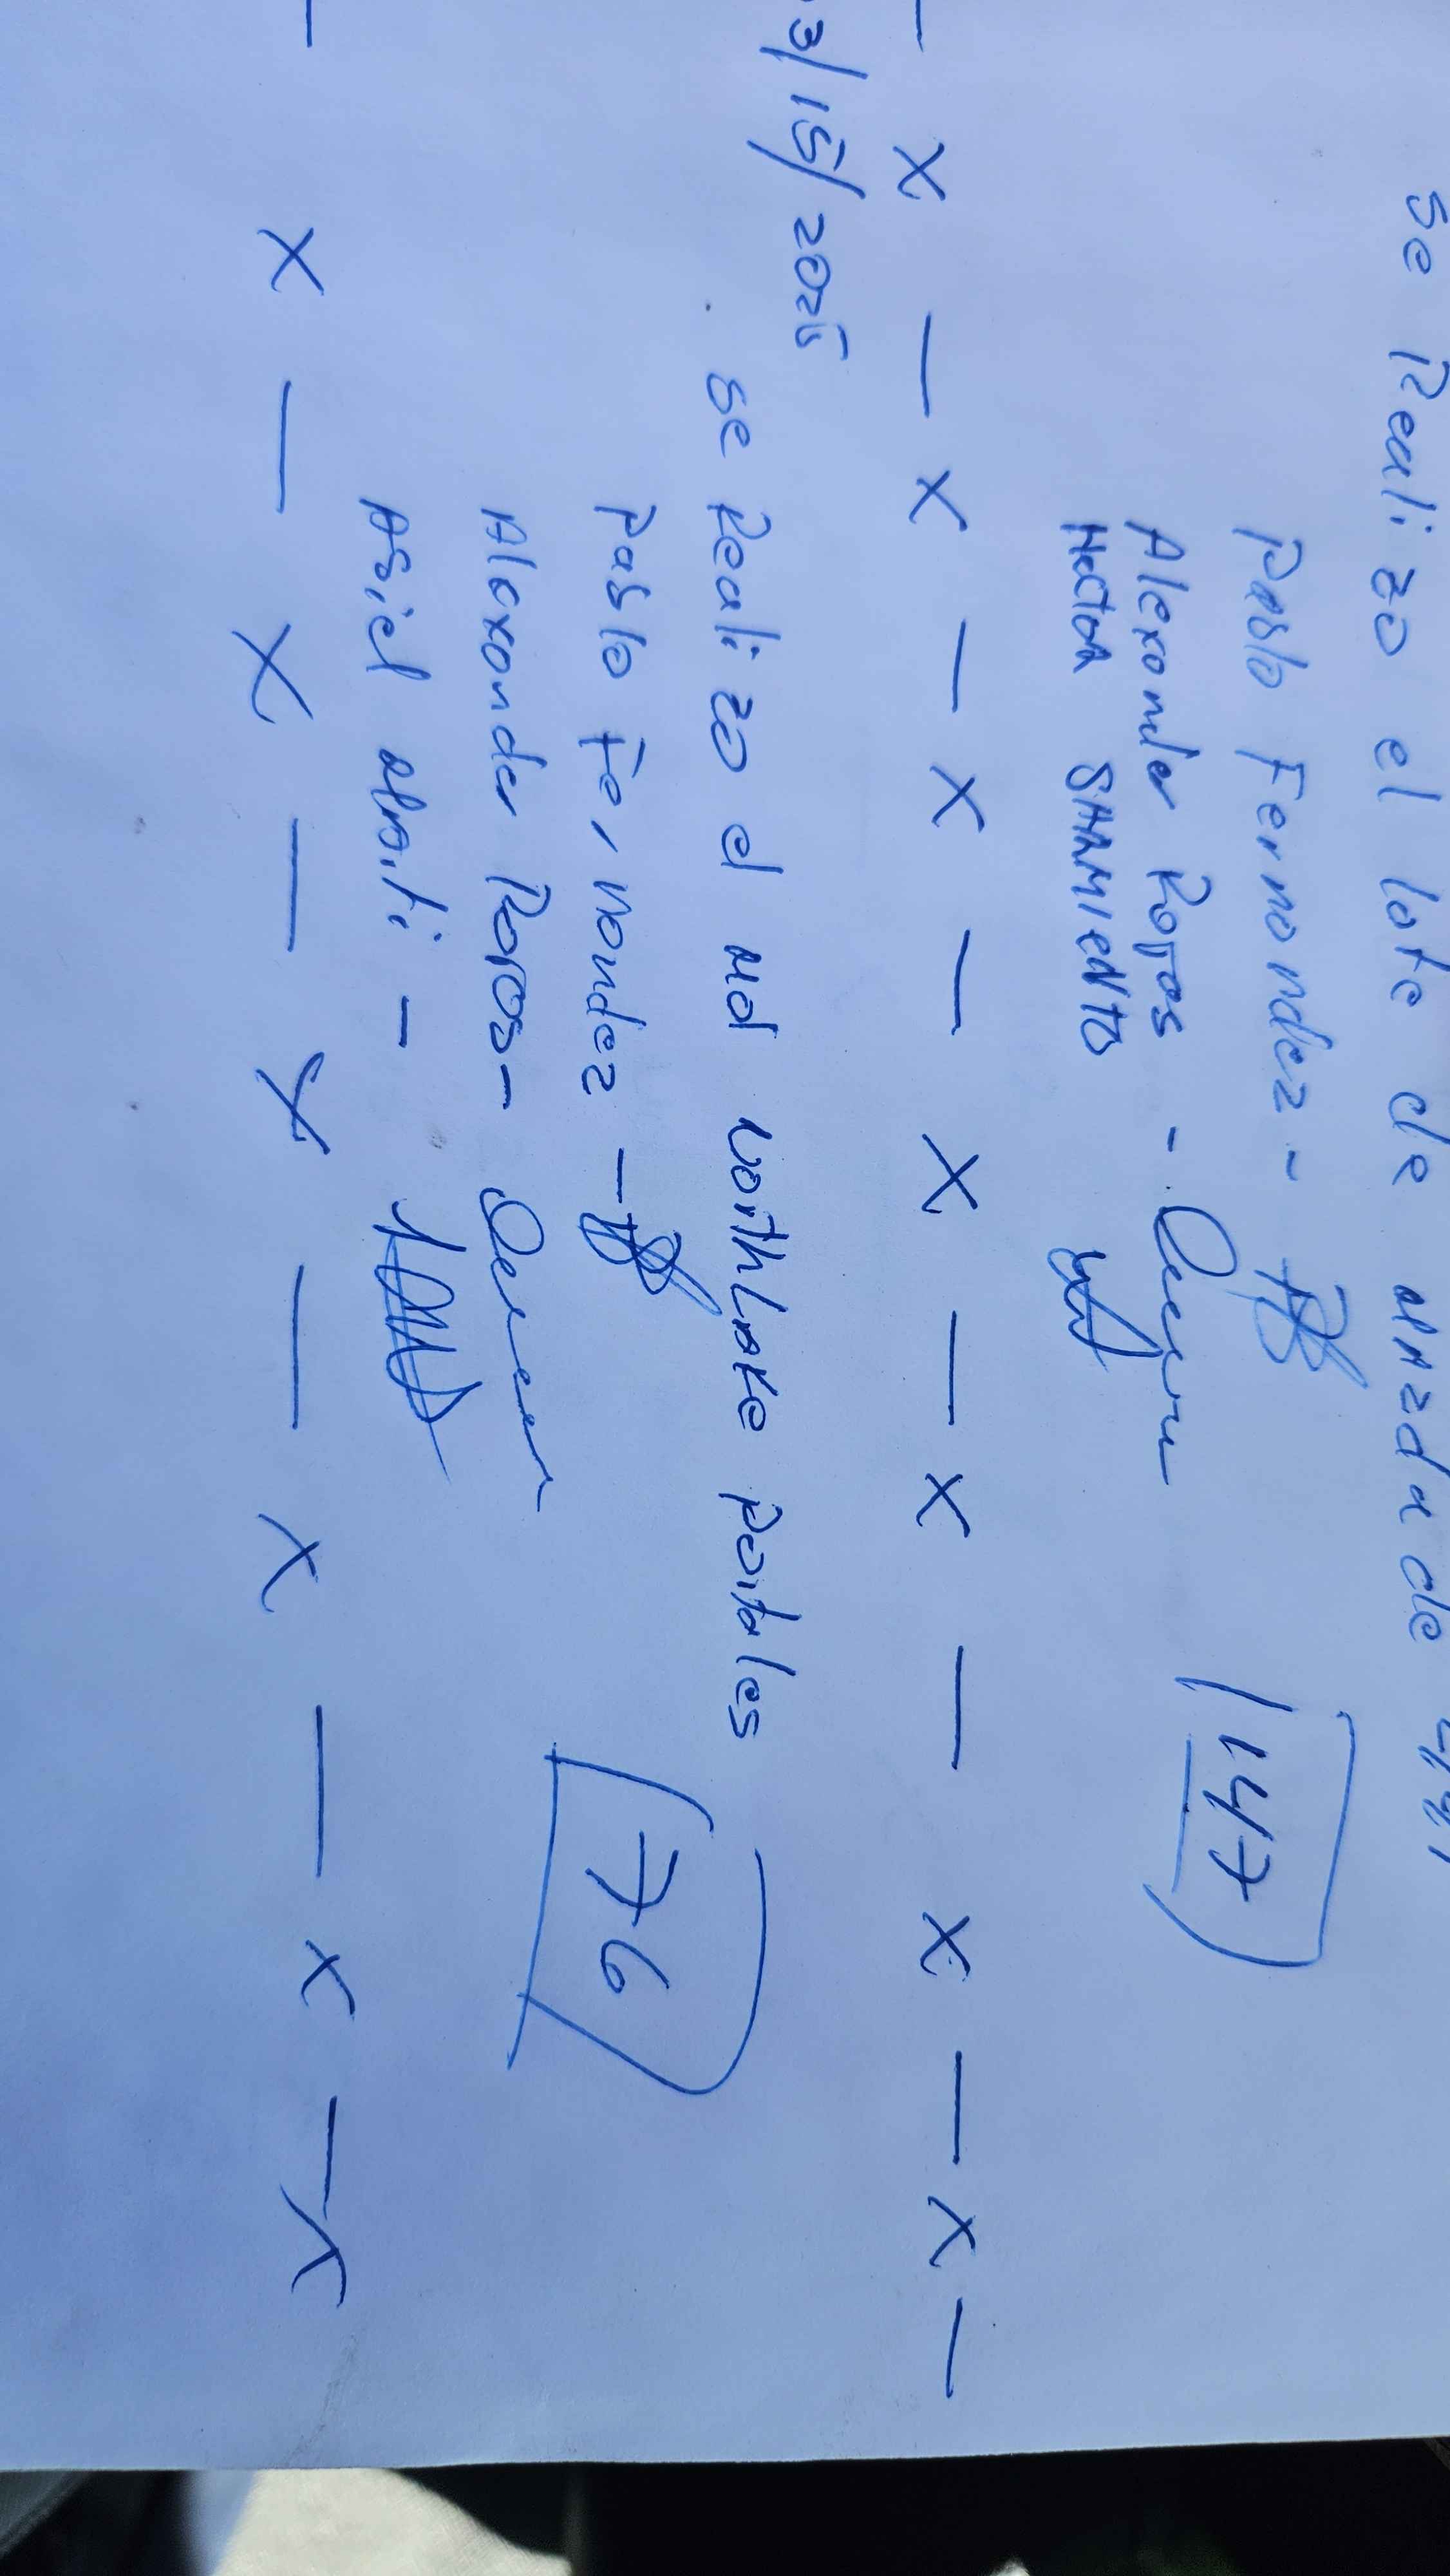 se Realizo el lote de mazda de
Pablo Fernandez -
Alexander Rojas -
Hector SARMIENTO
147
— X — X — X — X — X — X — X —
3/15/2025
se Realizo el md northLake portales
Pablo Fernandez —
Alexander Rojas —
76
Asiel
— X — X — X — X — X — X